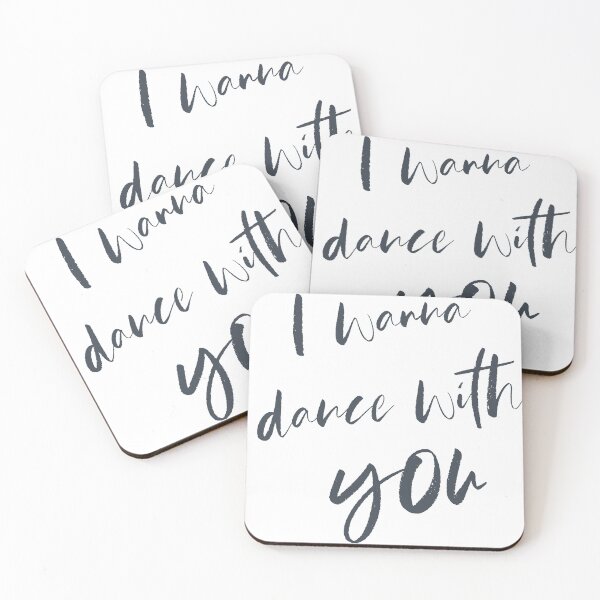 I wanna
dance with
I wanna
dance with
you
I wanna
dance with
you
I wanna
dance with
you